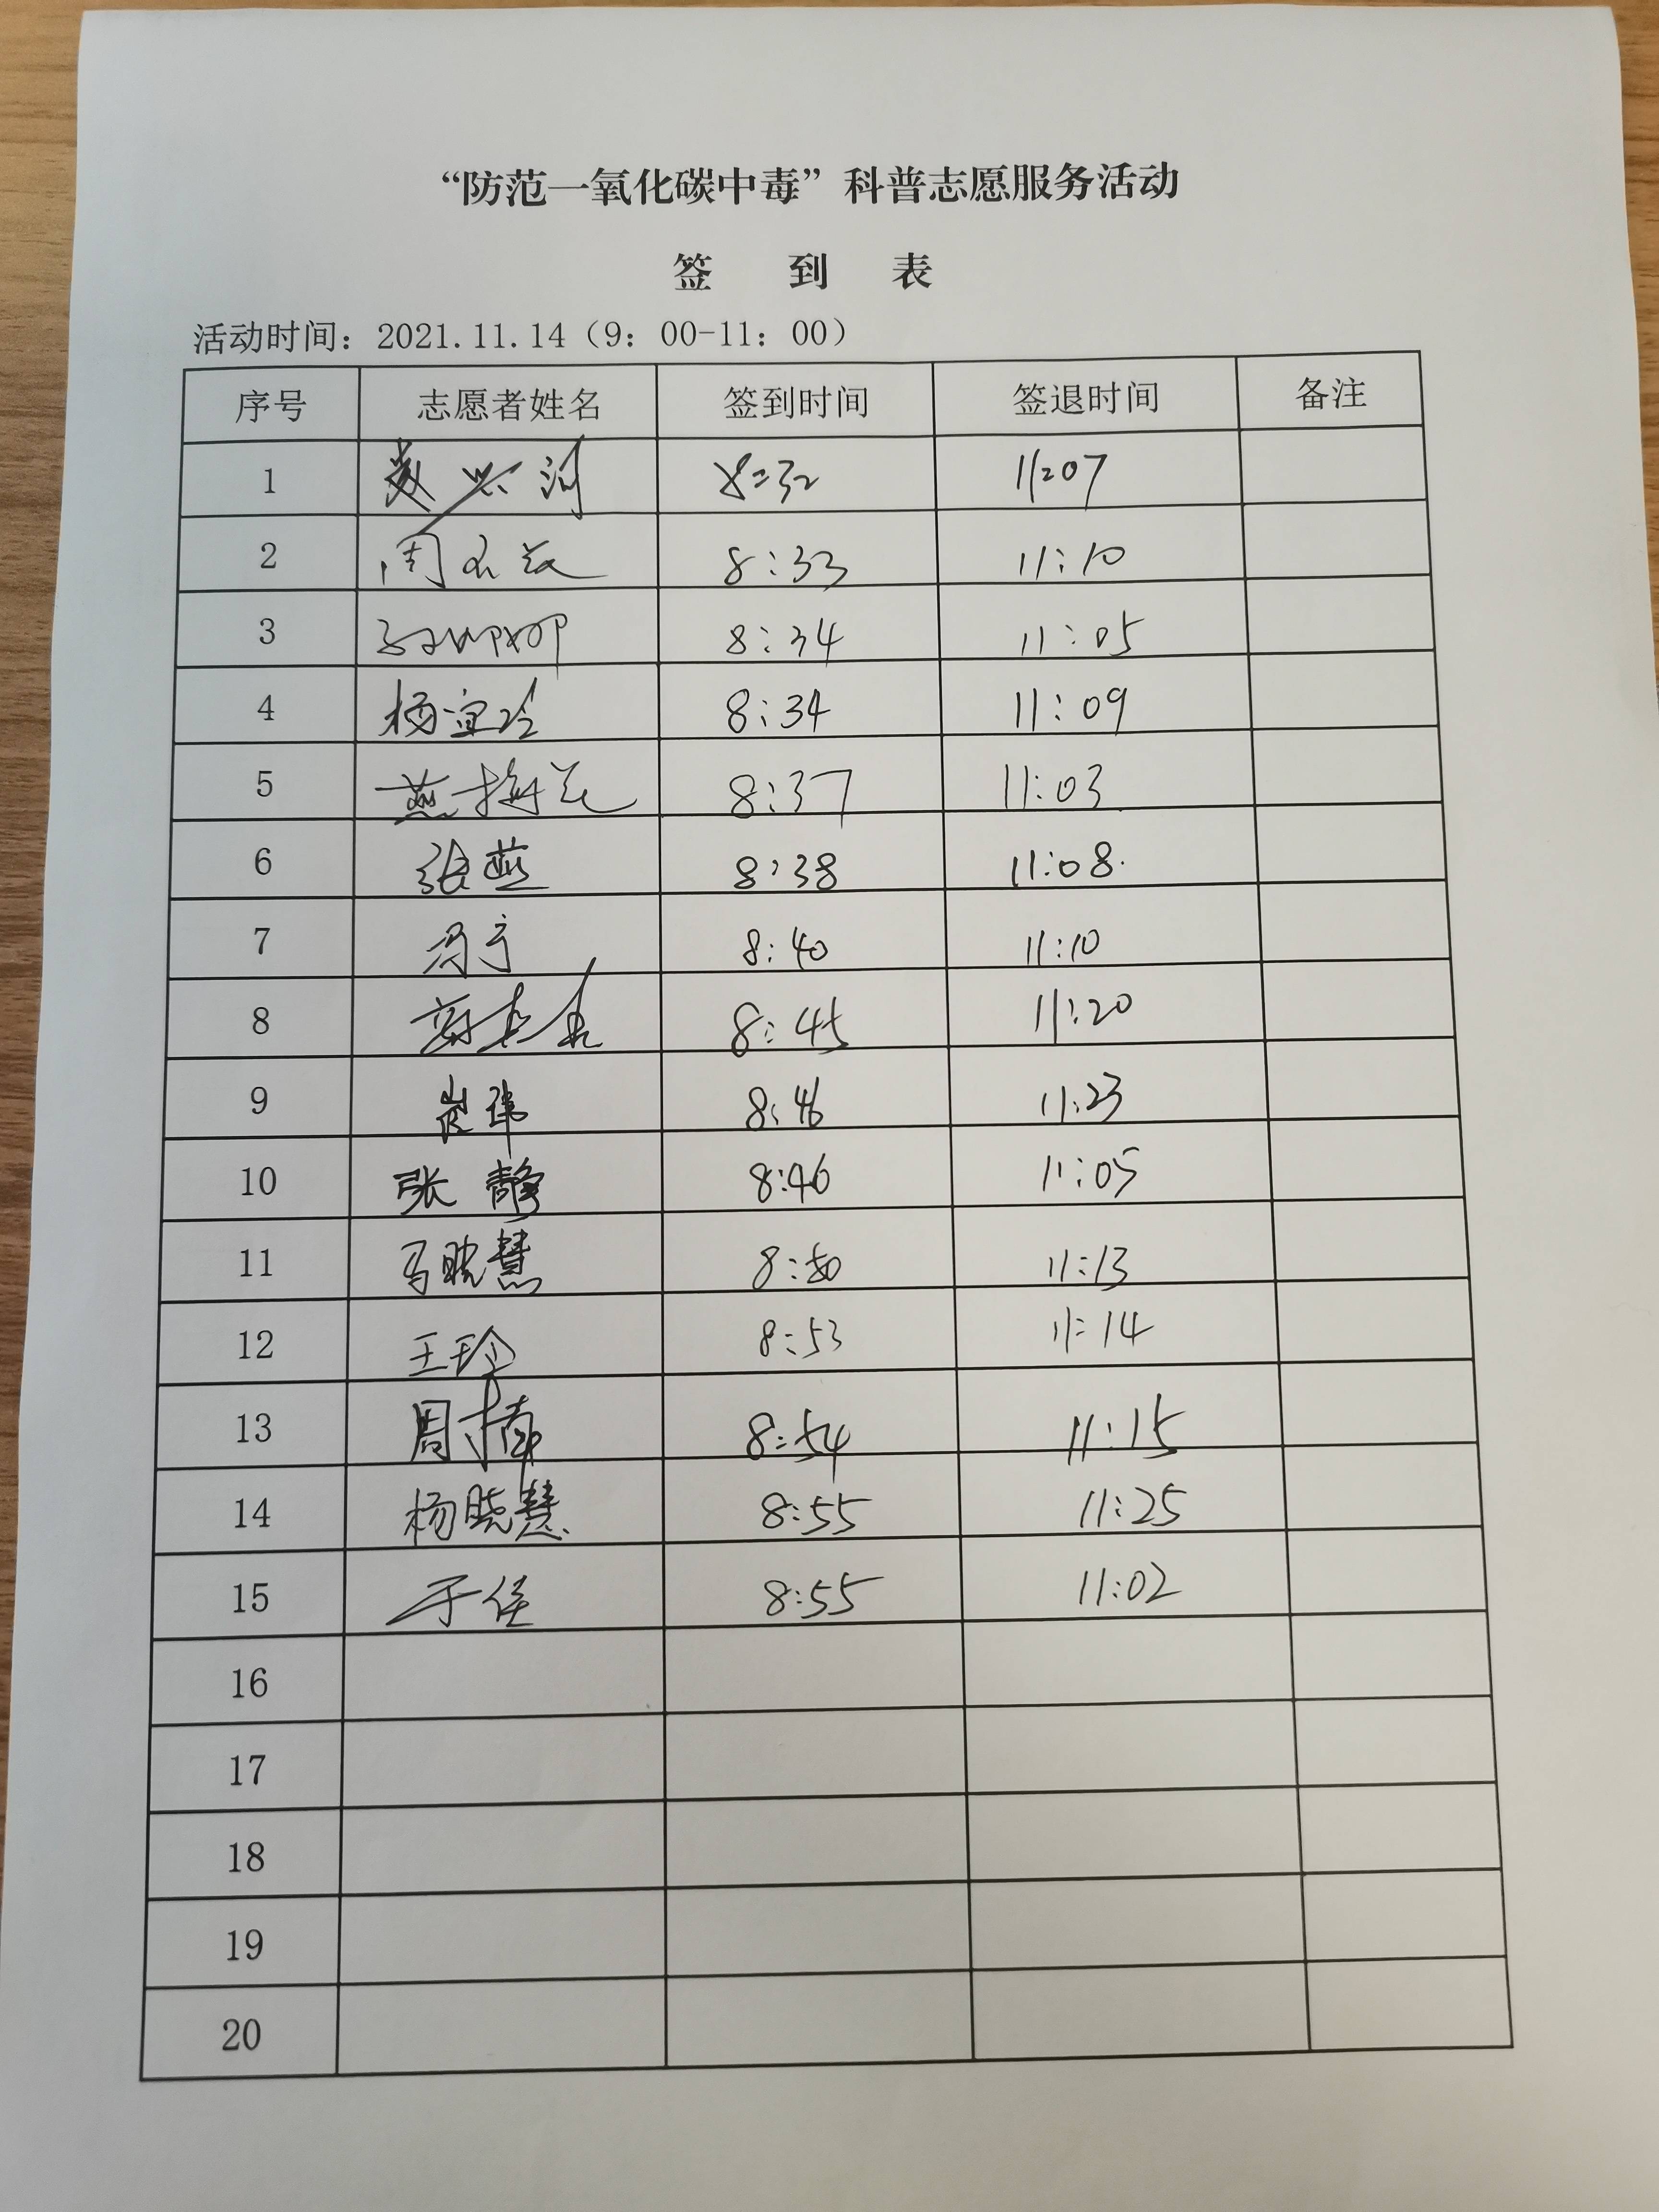 “防范一氧化碳中毒”科普志愿服务活动
签 到 表
活动时间：2021.11.14（9：00-11：00）
序号 志愿者姓名 签到时间 签退时间 备注
1 8:32 11:07
2 周 8:33 11:10
3 8:34 11:05
4 杨宜玲 8:34 11:09
5 燕梅花 8:37 11:03
6 张燕 8:38 11:08
7 8:40 11:10
8 8:45 11:20
9 崔玮 8:46 11:23
10 张静 8:46 11:05
11 马晓慧 8:50 11:13
12 王珍 8:53 11:14
13 周楠 8:54 11:15
14 杨晓慧 8:55 11:25
15 于佳 8:55 11:02
16
17
18
19
20